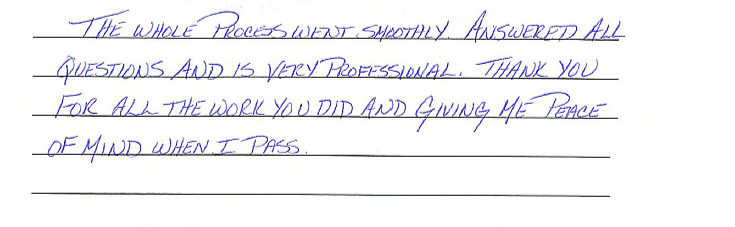 THE WHOLE PROCESS WENT SMOOTHLY. ANSWERED ALL
QUESTIONS AND IS VERY PROFESSIONAL. THANK YOU
FOR ALL THE WORK YOU DID AND GIVING ME PEACE
OF MIND WHEN I PASS.